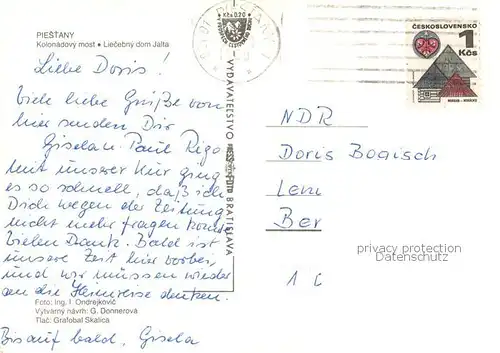 PIEŠŤANY
Kolonádový most • Liečebný dom Jalta
Liebe Doris!
Viele liebe Grüße von
hier senden Dir
Gisela u. Paul Rigo
mit unserer Kur ging
es so schnell, daß ich
Dich wegen der Zeitung
nicht mehr fragen konnte
vielen Dank. Bald ist
unsere Zeit hier vorbei,
und wir müssen wieder
an die Heimreise denken.
Foto: Ing. I. Ondrejkovič
Výtvarný návrh: G. Donnerová
Tlač: Grafobal Skalica
Bis auf bald, Gisela
VYDAVATEĽSTVO
BRATISLAVA
Kčs 0,20
PIEŠŤANY 1
ČESKOSLOVENSKO
1
Kčs
NDR
Doris
Ber
1 C
privacy protection
Datenschutz